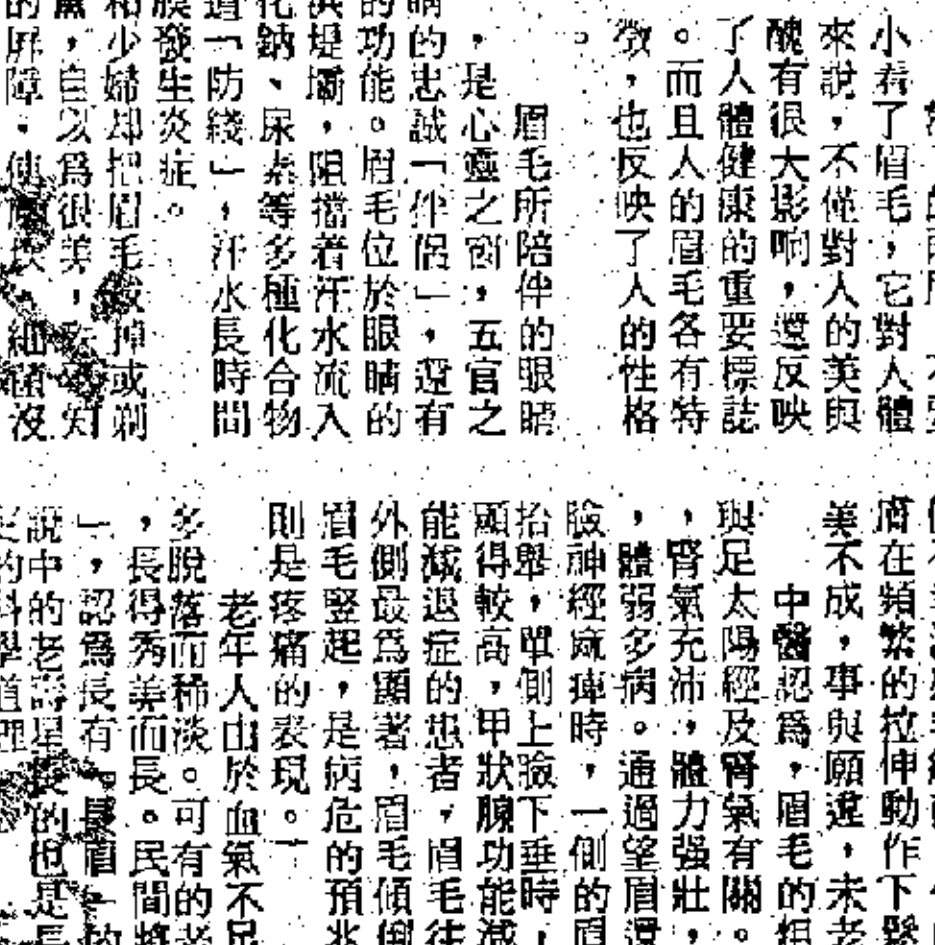 小看了眉毛，它對人體
來說，不僅對人的美與
醜有很大影响，還反映
了人體健康的重要標誌
。而且人的眉毛各有特
徵，也反映了人的性格
。
眉毛所陪伴的眼睛
，是心靈之窗，五官之
的忠誠「伴侶」，還有
的功能。眉毛位於眼睛的
洪堤壩，阻擋着汗水流入
化鈉、尿素等多種化合物
道「防綫」，汗水長時間
膜發生炎症。
和少婦却把眉毛拔掉或剃
，自以爲很美，殊不知
的屏障，使細菌沒
膚在頻繁的拉伸動作下鬆
美不成，事與願違，未老
中醫認爲，眉毛的粗
與足太陽經及腎氣有關。
，腎氣充沛，體力强壯，
，體弱多病。通過望眉還
臉神經痲痺時，一側的眉
抬舉，單側上臉下垂時，
顯得較高，甲狀腺功能減
能減退症的患者，眉毛往
外側最爲顯著，眉毛傾倒
眉毛竪起，是病危的預兆
則是疼痛的表現。
老年人由於血氣不足
多脫落而稀淡。可有的老
，長得秀美而長。民間將
」，認爲長有「長眉」的
說中的老壽星長的也是長
的科學道理